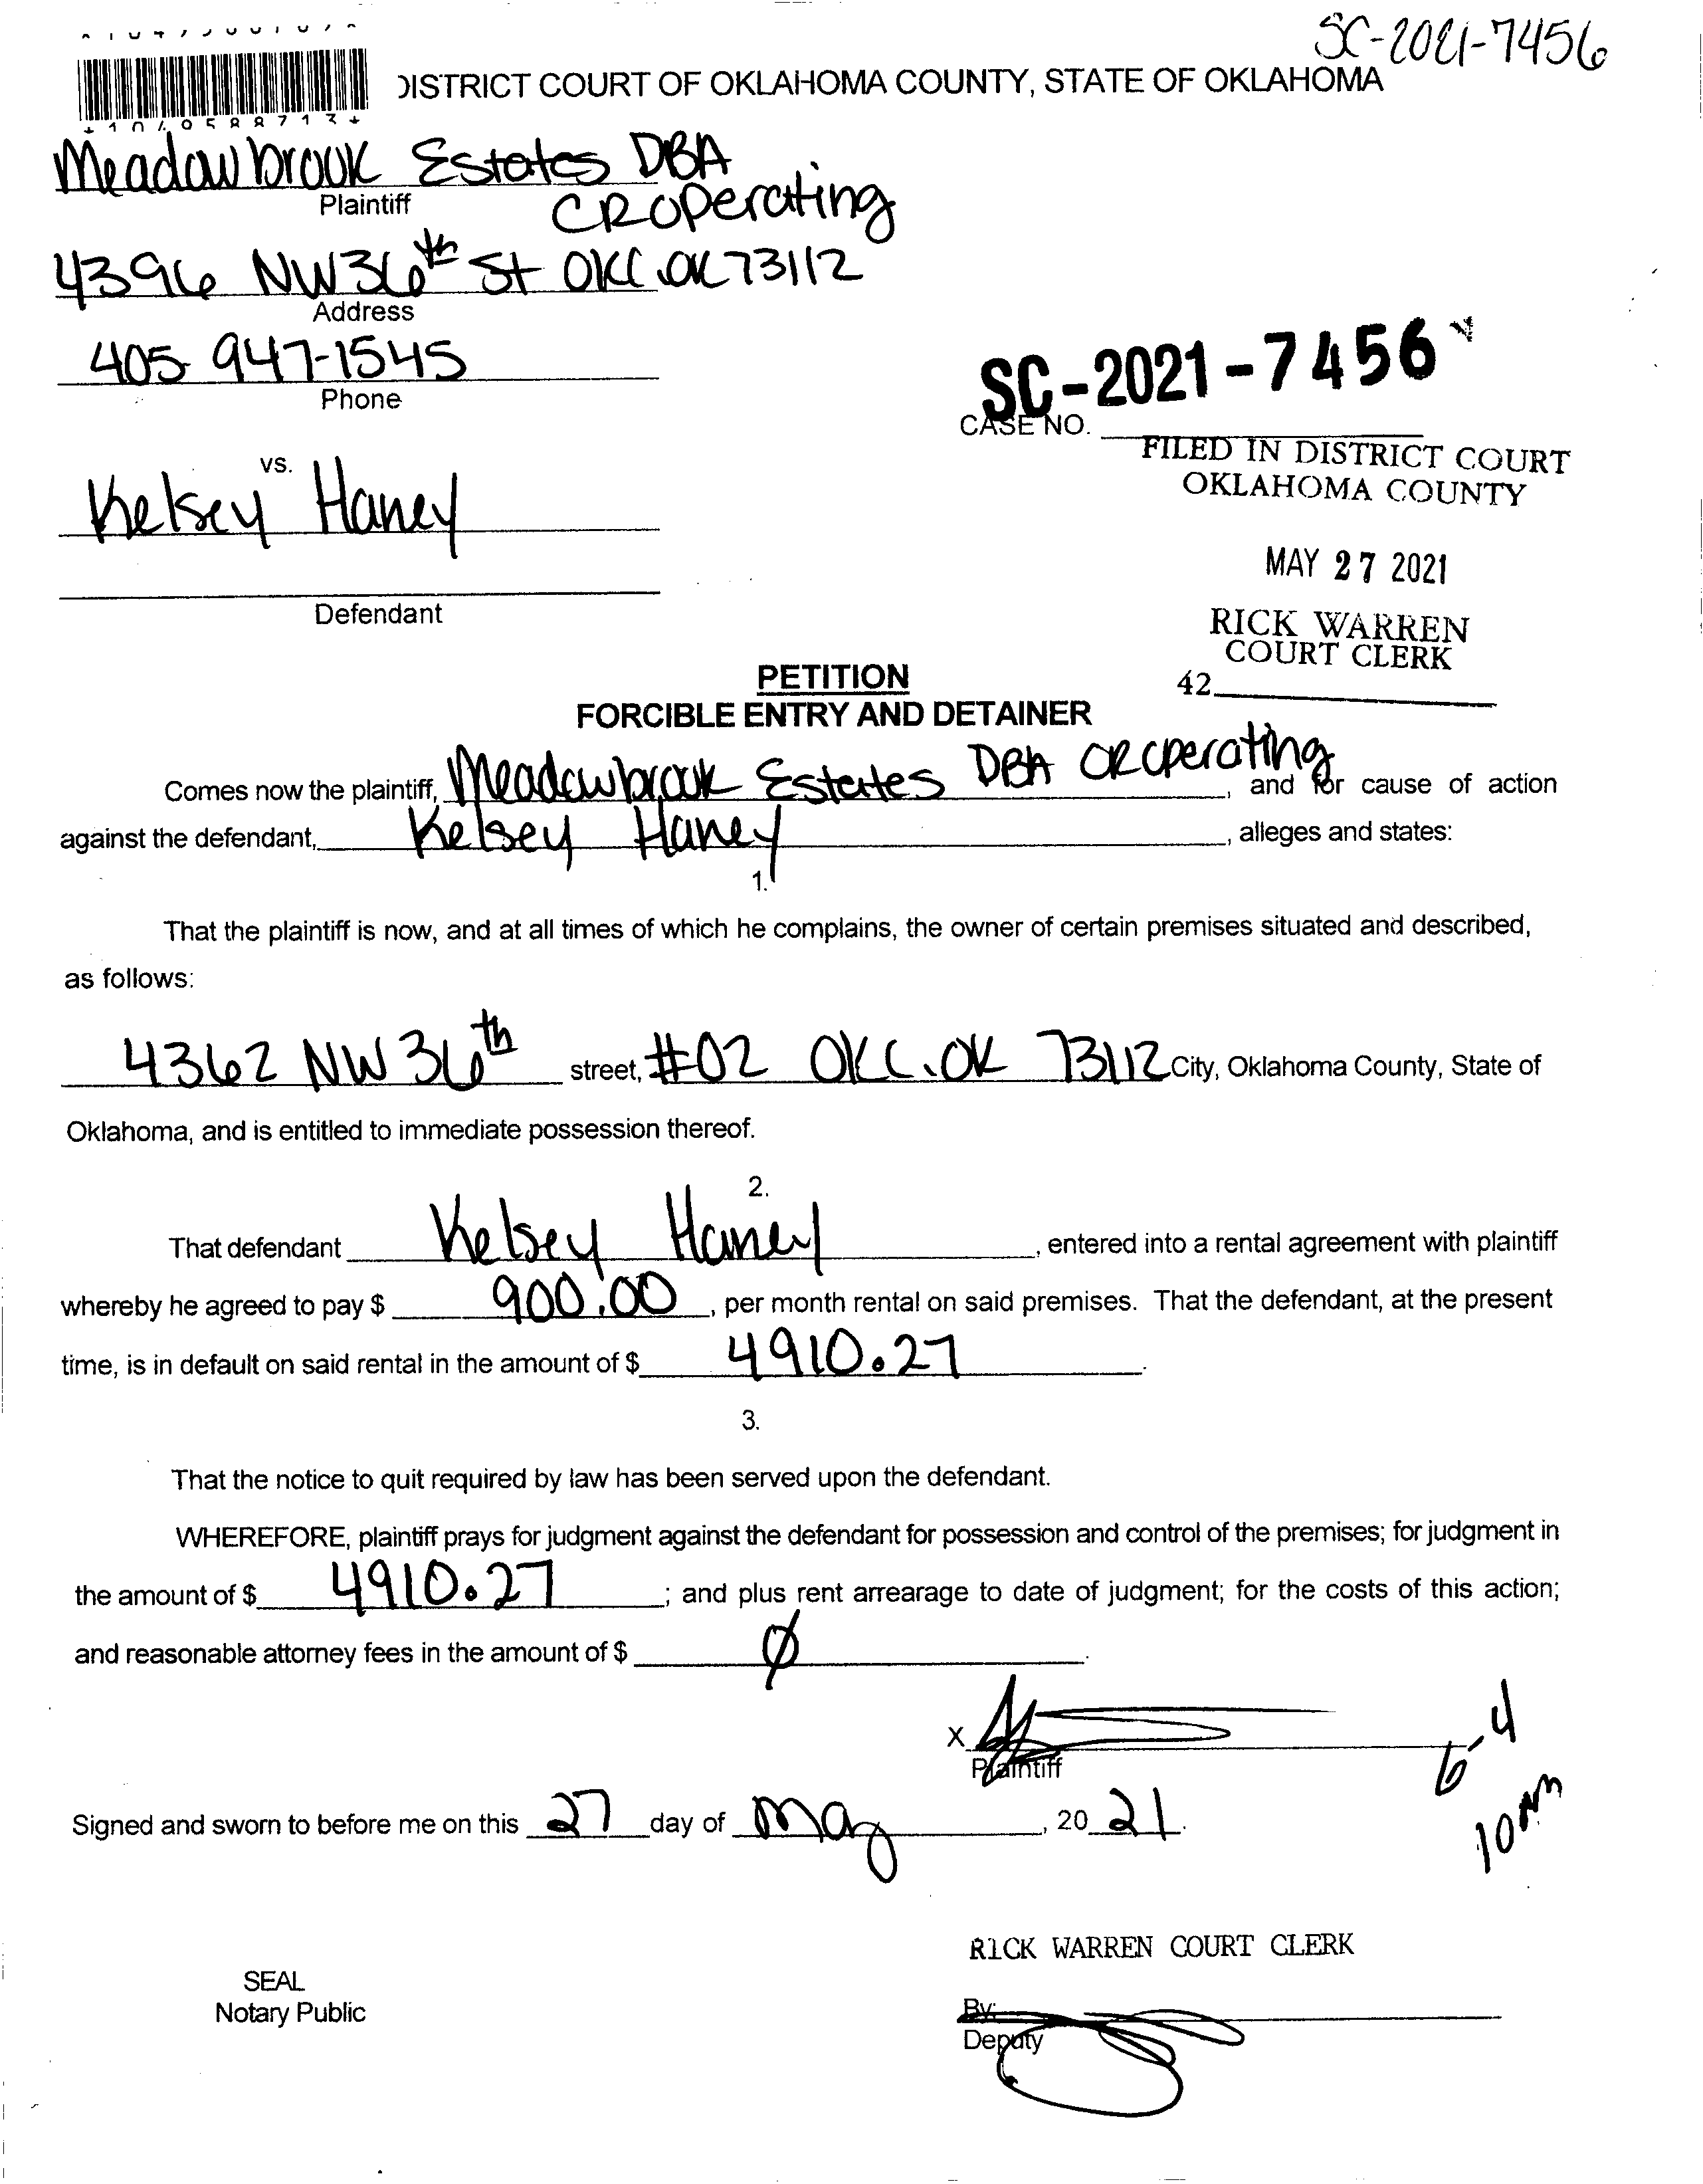 SC-2021-7456
DISTRICT COURT OF OKLAHOMA COUNTY, STATE OF OKLAHOMA
*1049588713*
Meadowbrook Estates DBA
Plaintiff
CROperating
4396 NW 36th St OKC OK 73112
Address
405-947-1545
Phone
SC-2021-7456
CASE NO.
FILED IN DISTRICT COURT
OKLAHOMA COUNTY
vs.
Kelsey Haney
MAY 27 2021
Defendant
RICK WARREN
COURT CLERK
42
PETITION
FORCIBLE ENTRY AND DETAINER
Comes now the plaintiff, Meadowbrook Estates DBA CROperating, and for cause of action
against the defendant, Kelsey Haney, alleges and states:
1.
That the plaintiff is now, and at all times of which he complains, the owner of certain premises situated and described,
as follows:
4362 NW 36th street, #02 OKC. OK 73112 City, Oklahoma County, State of
Oklahoma, and is entitled to immediate possession thereof.
2.
That defendant Kelsey Haney, entered into a rental agreement with plaintiff
whereby he agreed to pay $ 900.00, per month rental on said premises. That the defendant, at the present
time, is in default on said rental in the amount of $ 4910.27.
3.
That the notice to quit required by law has been served upon the defendant.
WHEREFORE, plaintiff prays for judgment against the defendant for possession and control of the premises; for judgment in
the amount of $ 4910.27; and plus rent arrearage to date of judgment; for the costs of this action;
and reasonable attorney fees in the amount of $ Ø.
X
Plaintiff
6-4
10am
Signed and sworn to before me on this 27 day of May, 2021.
RICK WARREN COURT CLERK
SEAL
Notary Public
By:
Deputy